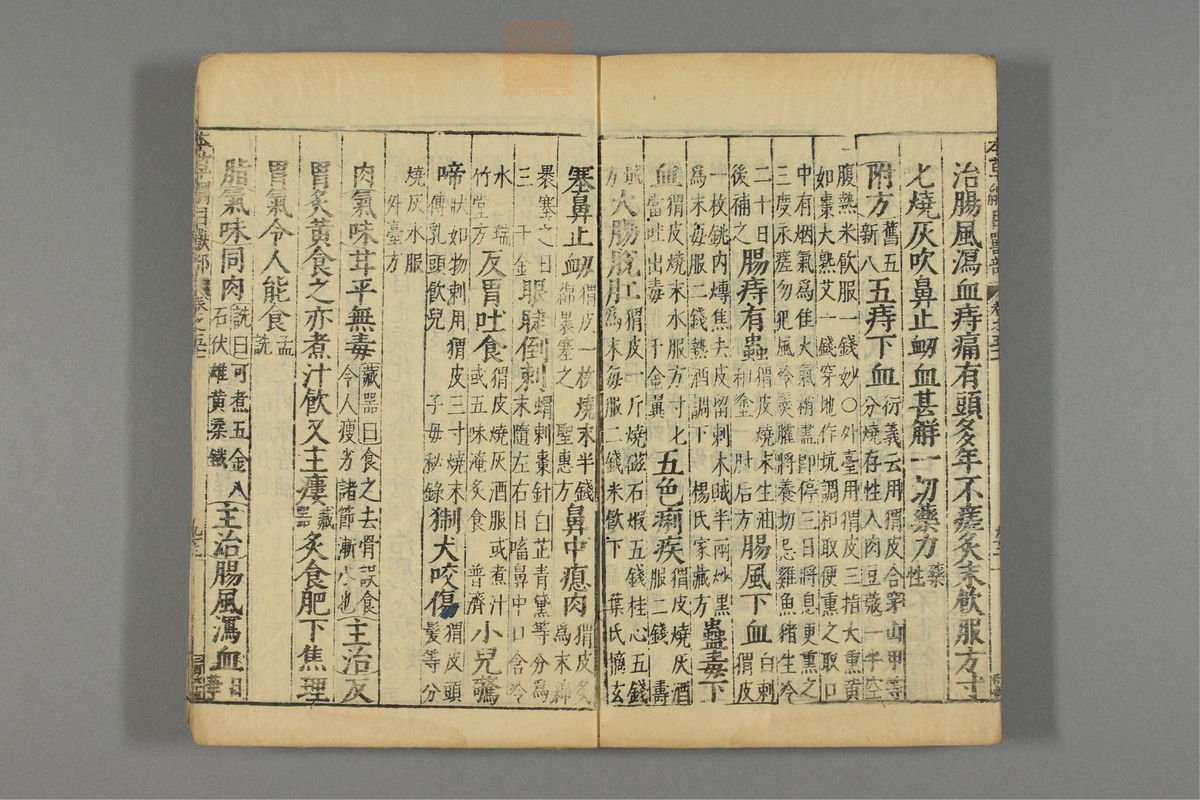 治腸風瀉血痔痛有頭多年不瘥炙末飲服方寸
匕燒灰吹鼻止衂血甚解一切藥力藥性
附方舊五新八五痔下血衍義云用猬皮合穿山甲等分燒存性入肉豆蔻一半空
腹熱米飲服一錢妙○外臺用猬皮三指大熏黃
如棗大熟艾一錢穿地作坑調和取便熏之取口
中有烟氣爲佳火氣稍盡即停三日將息更熏之
三度永瘥勿犯風冷羹臛將養切忌雞魚猪生冷
二十日後補之腸痔有蟲猬皮燒末生油和塗肘后方腸風下血白刺猬皮
一枚銚內煿焦去皮留刺木賊半兩炒黑
爲末每服二錢熱酒調下楊氏家藏方蠱毒下
血猬皮燒末水服方寸匕當吐出毒千金翼五色痢疾猬皮燒灰酒服二錢壽
域方大腸脫肛猬皮一斤燒磁石煅五錢桂心五錢爲末每服二錢米飲下葉氏摘玄
塞鼻止衂猬皮一枚燒末半錢綿裹塞之聖惠方鼻中瘜肉猬皮炙爲末綿
裹塞之三日千金眼睫倒刺猬刺棗針白芷青黛等分爲末隨左右目㗜鼻中口含冷
水瑞竹堂方反胃吐食猬皮燒灰酒服或煮汁或五味淹炙食普濟小兒驚
啼狀如物刺用猬皮三寸燒末傅乳頭飲兒子母秘錄猘犬咬傷猬皮頭髮等分
燒灰水服外臺方
肉氣味甘平無毒藏器曰食之去骨誤食令人瘦劣諸節漸小也主治反
胃炙黃食之亦煮汁飲又主瘻藏器炙食肥下焦理
胃氣令人能食孟詵
脂氣味同肉詵曰可煮五金八石伏雄黃柔鐵主治腸風瀉血日華